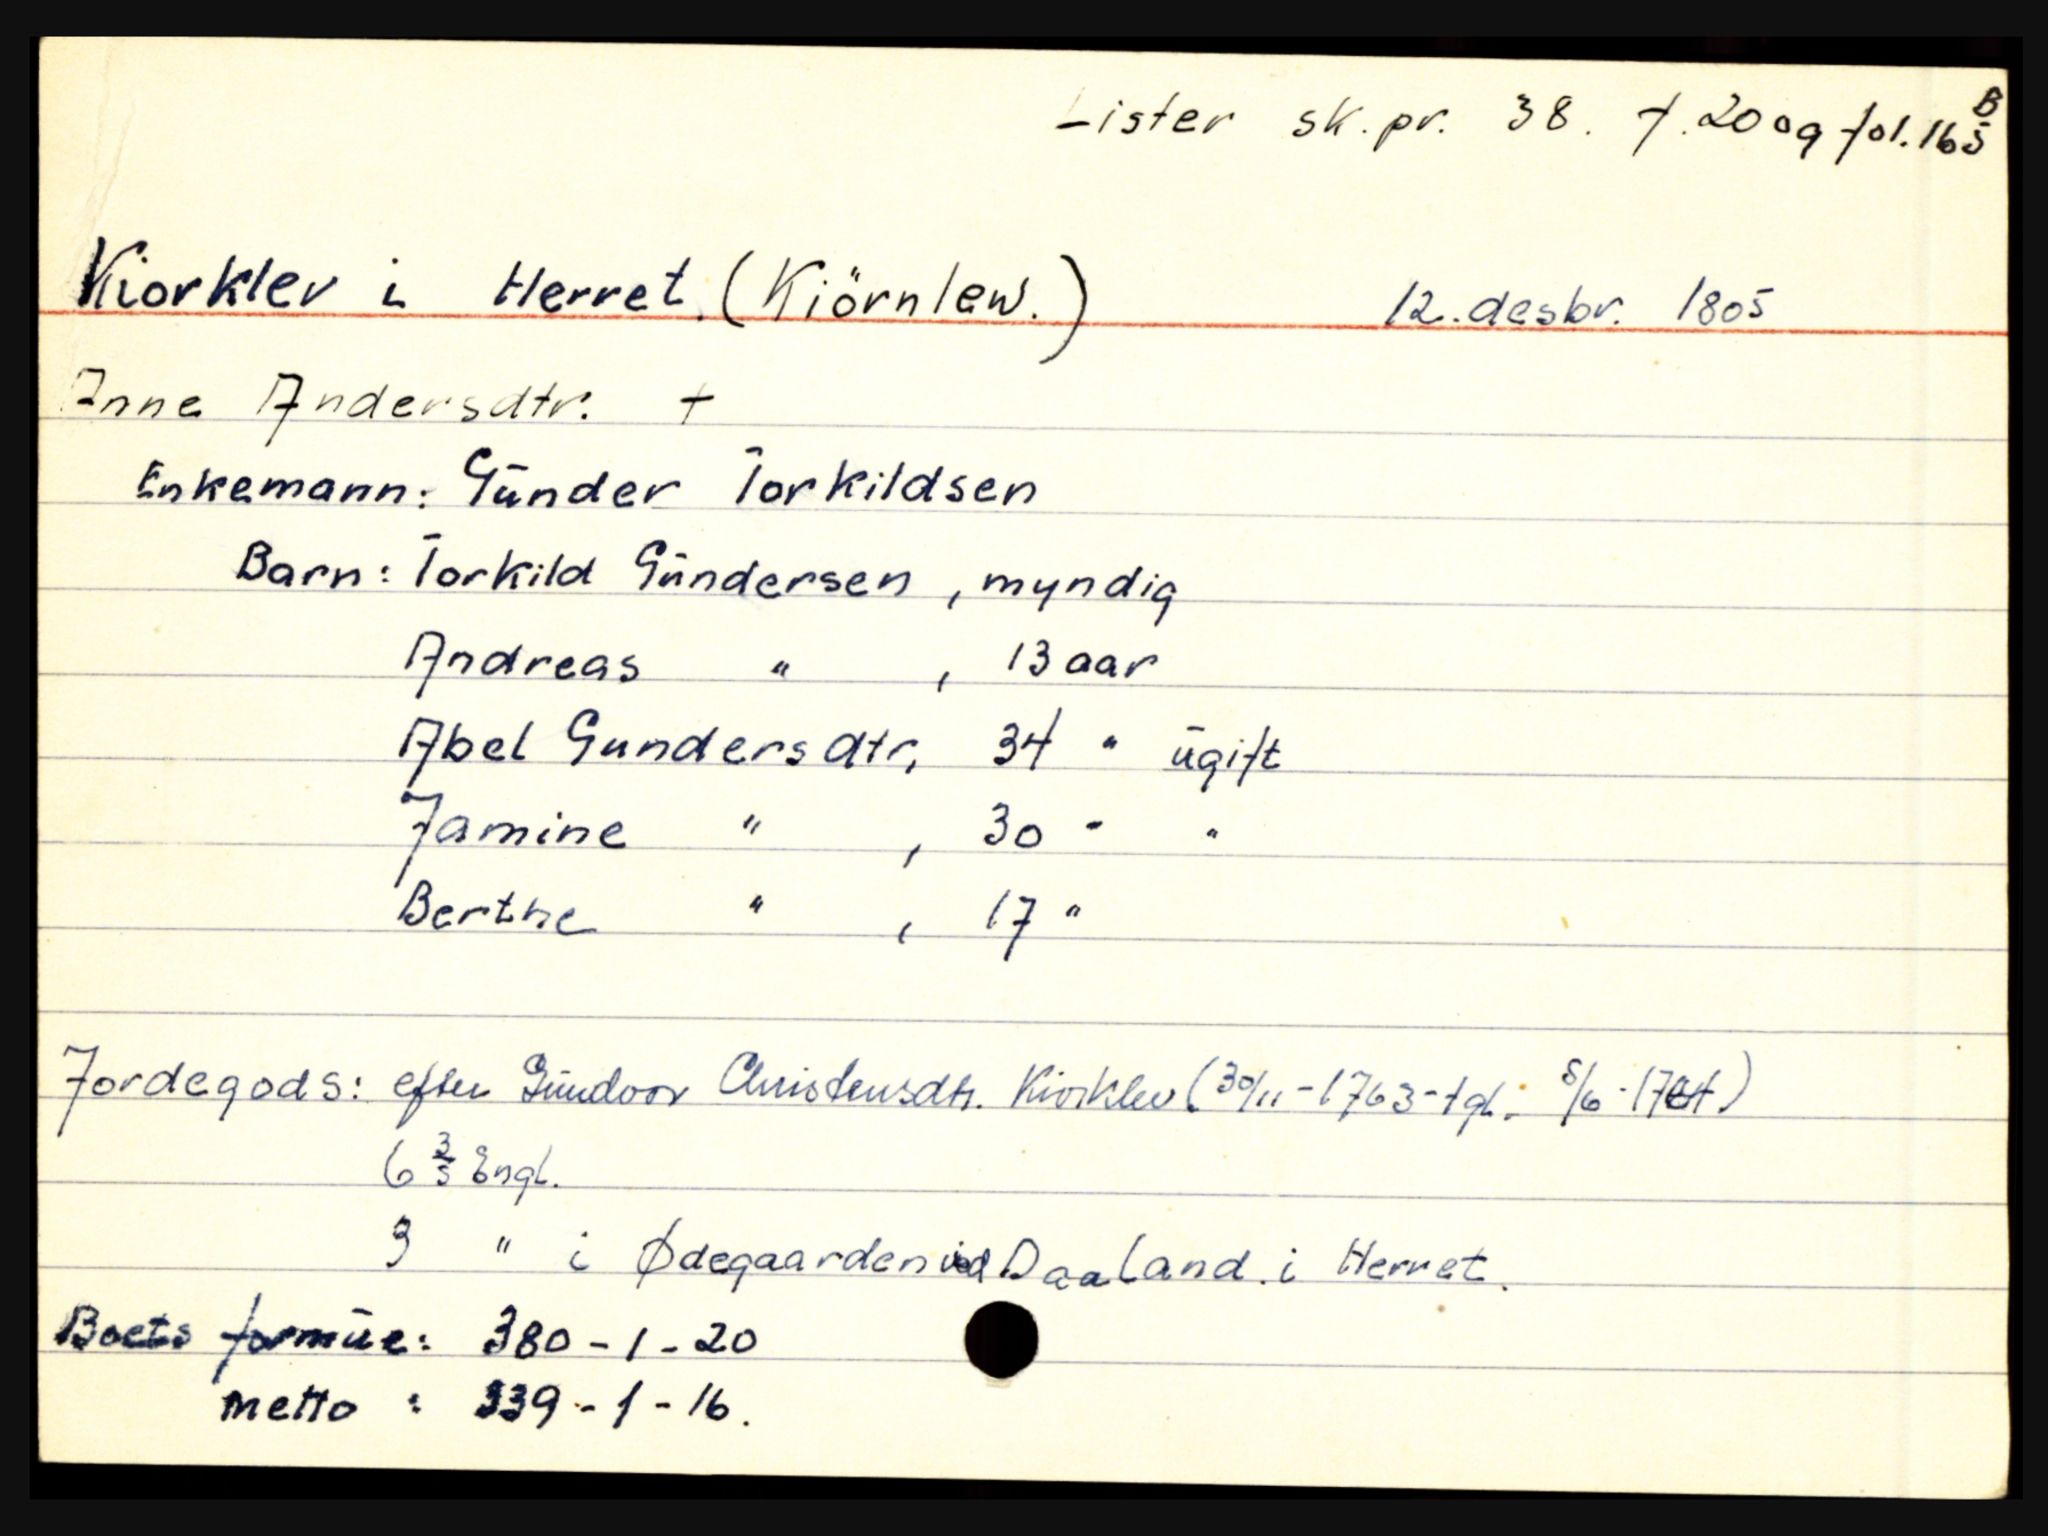 Lister sk.pr. 38. f.20 og fol.165 B
Kiorklev i Herret. (Kiörnlew.) 12.desbr. 1805
Anne Andersdtr. +
Enkemann: Gunder Torkildsen
Barn: Torkild Gundersen , myndig
Andreas " , 13 aar
Abel Gundersdtr, 34 " ugift
Jamine " , 30 " "
Berthe " , 17 "
Jordegods: efter Gundoor Christensdtr. Kiorklev (30/11-1763-tgl.
6 3/5 Engl.
3 " i Ødegaarden ved Daaland. i Herret.
Boets formue: 380-1-20
netto : 339-1-16.